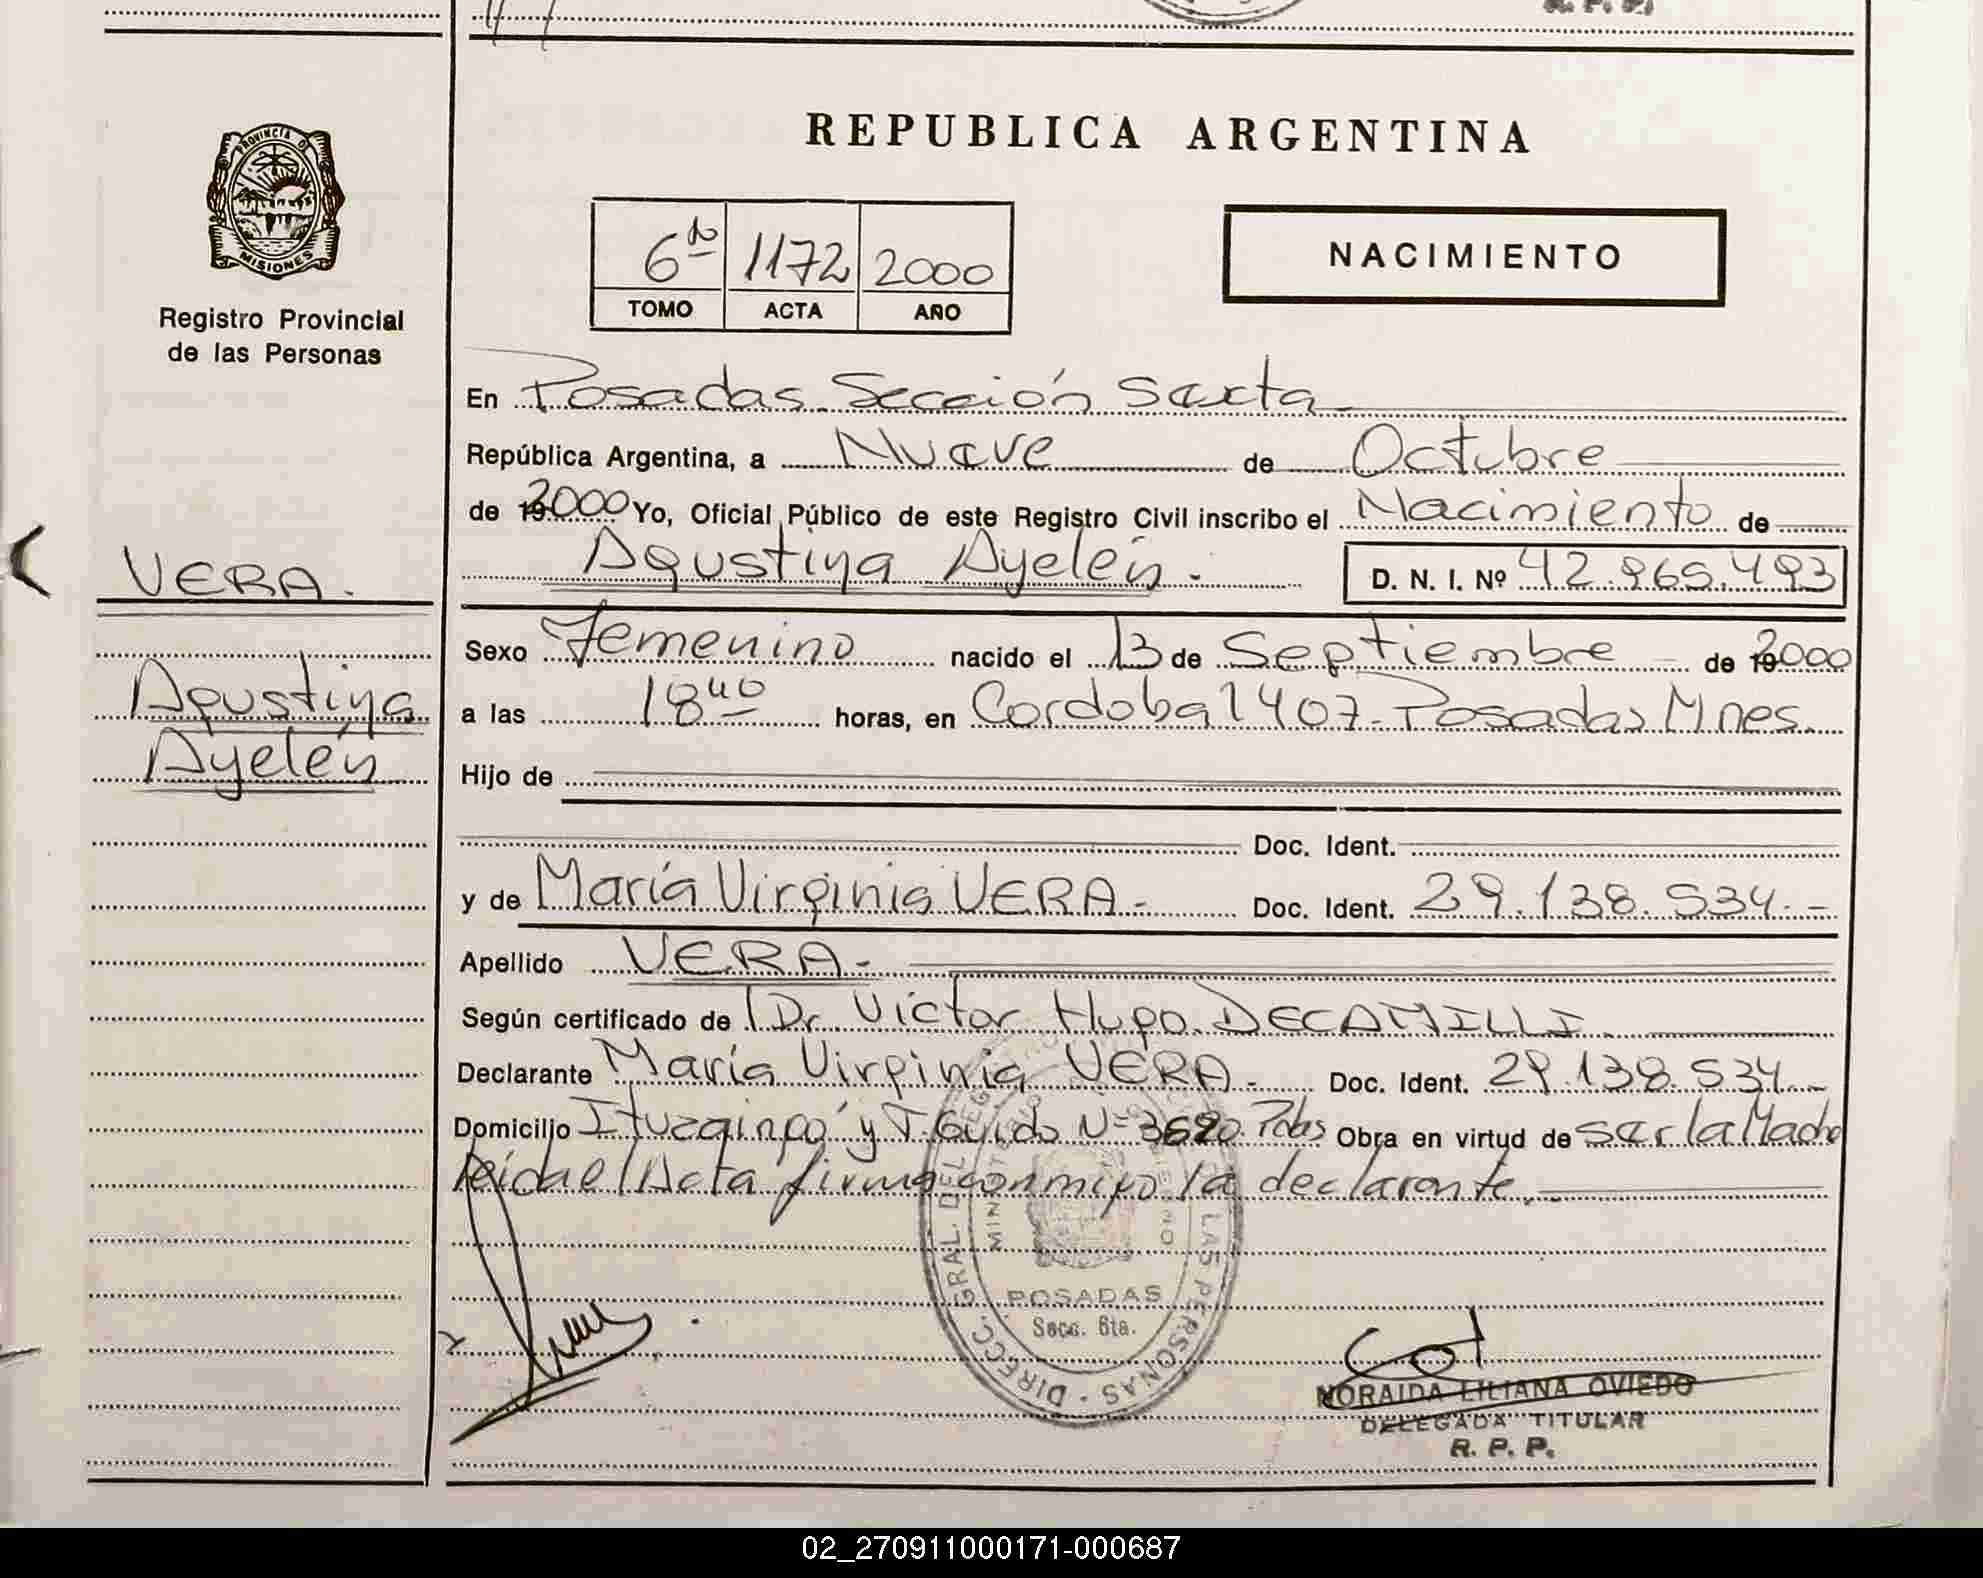 R. P. P.
REPUBLICA ARGENTINA
PROVINCIA D
MISIONES
Registro Provincial
de las Personas
6to 1172 2000
TOMO ACTA AÑO
NACIMIENTO
En Posadas Sección Sexta
República Argentina, a Nueve de Octubre
de 2000 Yo, Oficial Público de este Registro Civil inscribo el Nacimiento de
Agustina Ayelén. D. N. I. Nº 42.965.493
VERA.
Agustina
Ayelén
Sexo Femenino nacido el 13 de Septiembre de 2000
a las 18 40 horas, en Cordoba 1407 - Posadas Mnes.
Hijo de
Doc. Ident.
y de María Virginia VERA - Doc. Ident. 29.138.534.-
Apellido VERA -
Según certificado de Dr. Victor Hugo DECAMILLI
Declarante María Virginia VERA - Doc. Ident. 29.138.534
Domicilio Ituzaingó y T. Guido Nº 3620 Pdas Obra en virtud de ser la Madre
leída el Acta firma conmigo la declarante.
DIRECC. GRAL. DEL REG LAS PERSONAS
POSADAS
Secc. 6ta.
NORAIDA LILIANA OVIEDO
DELEGADA TITULAR
R. P. P.
02_270911000171-000687